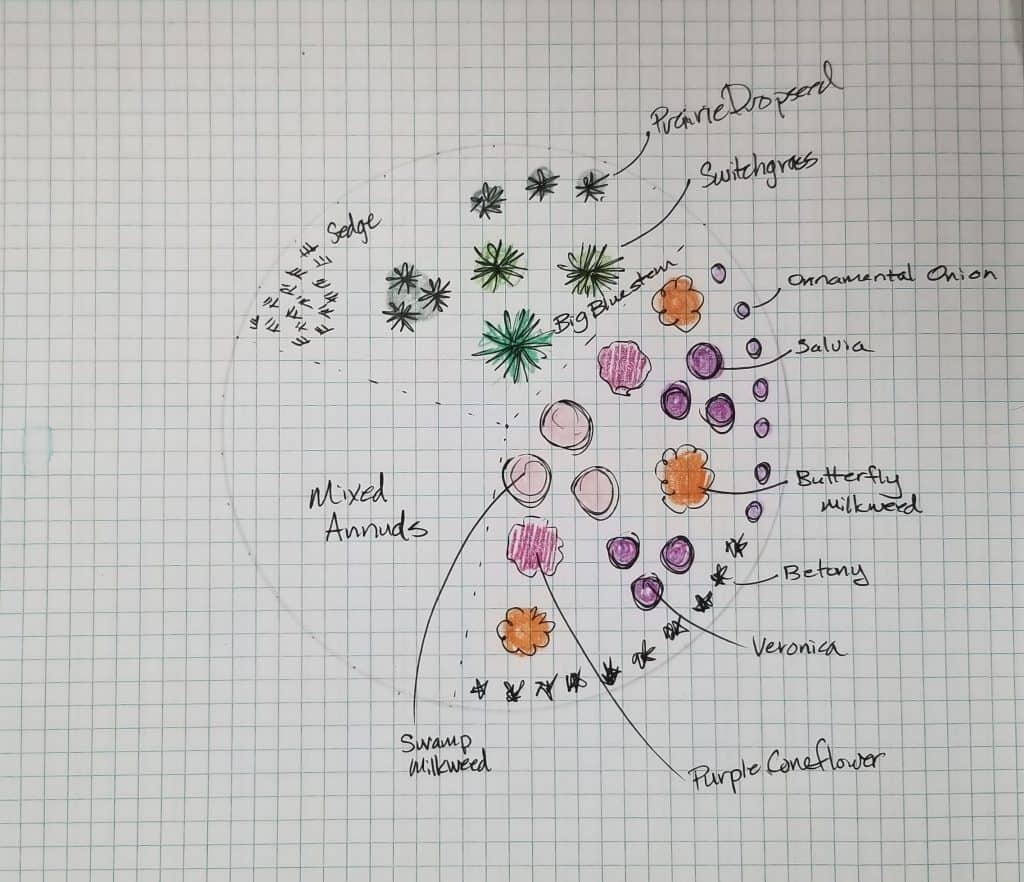 Prairie Dropseed
Switchgrass
Sedge
Big Bluestem
Ornamental Onion
Salvia
Butterfly
milkweed
Mixed
Annuals
Betony
Veronica
Swamp
milkweed
Purple Coneflower